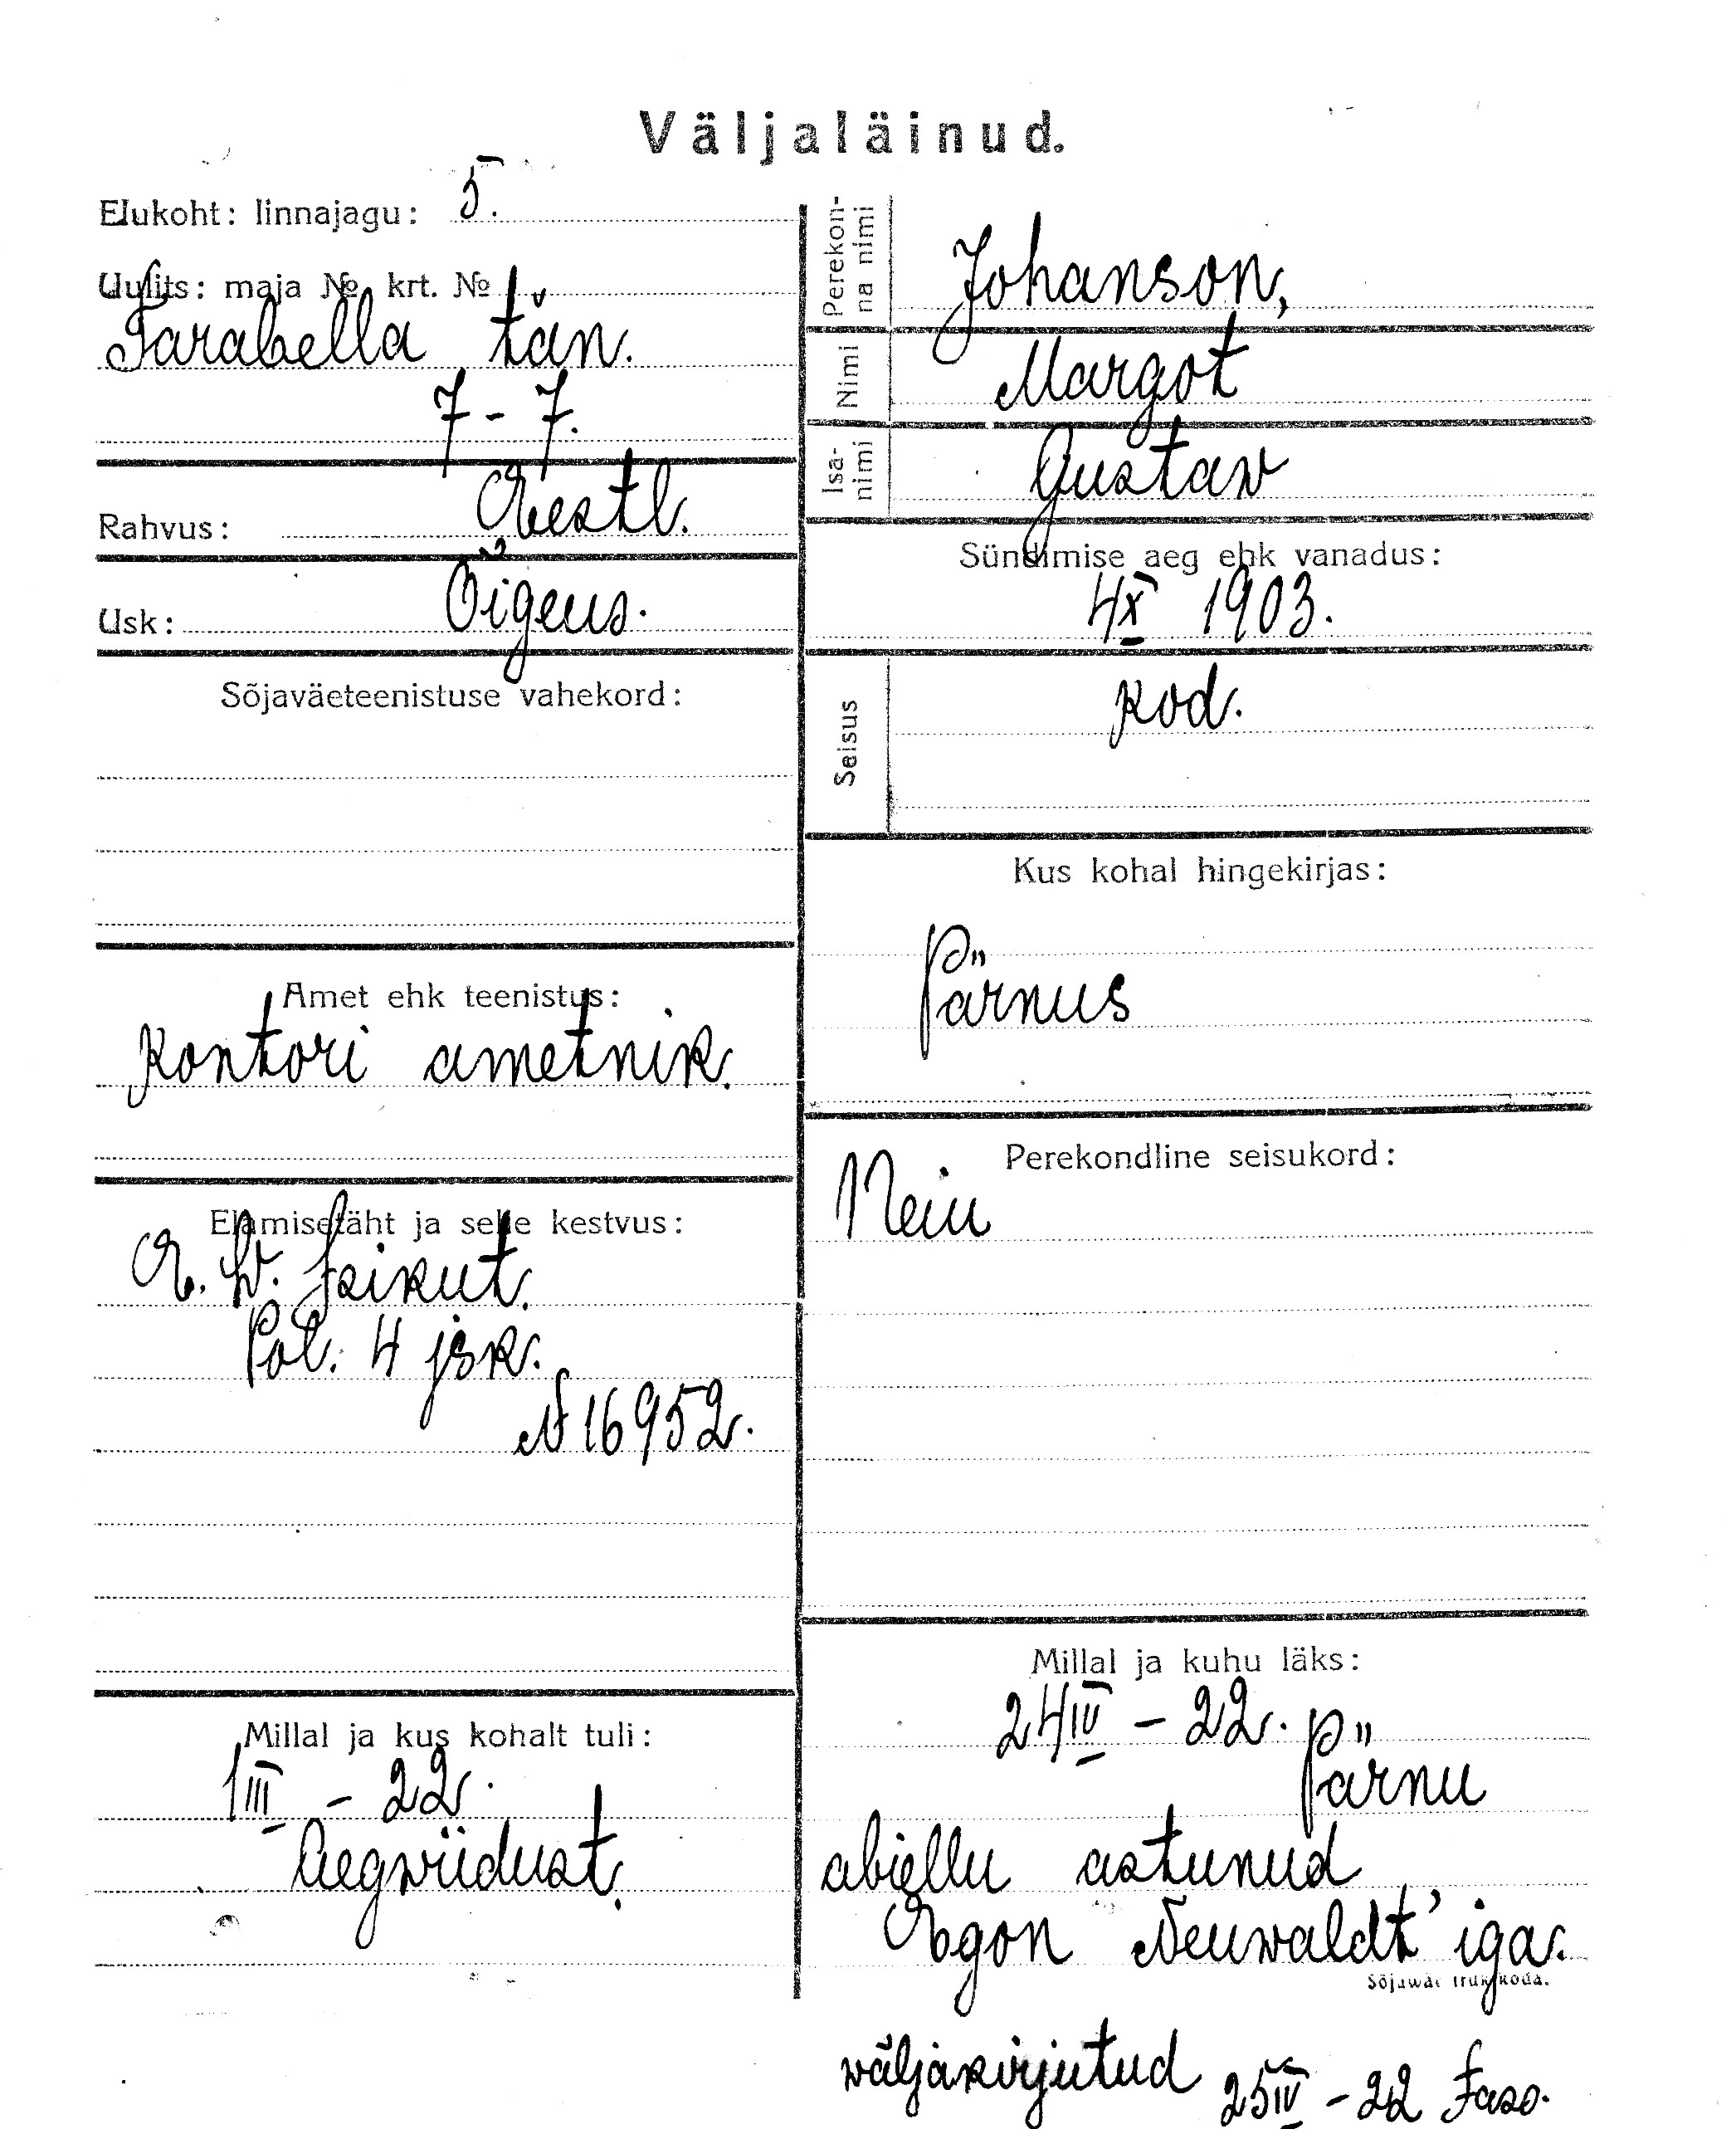 Väljaläinud.
Elukoht: linnajagu: 5.
Uulits: maja № krt. №
Farabella tän.
7 - 7.
Rahvus: Eestl.
Usk: Õigeus.
Sõjaväeteenistuse vahekord:
Amet ehk teenistus:
Kontori ametnik.
Elamisetäht ja selle kestvus:
E. W. Isikut.
Pol. 4 jsk.
N 16952.
Millal ja kus kohalt tuli:
1 III - 22.
Aegwiidust.
Perekon-
na nimi
Johanson,
Nimi Margot
Isa-
nimi
Gustav
Sündimise aeg ehk vanadus:
4 X 1903.
Seisus
kod.
Kus kohal hingekirjas:
Pärnus
Perekondline seisukord:
Neiu
Millal ja kuhu läks:
24 IV - 22. Pärnu
abiellu astunud
Egon Neuwaldt'iga.
Sõjawäe trükikoda.
wäljakirjutud 25 IV - 22